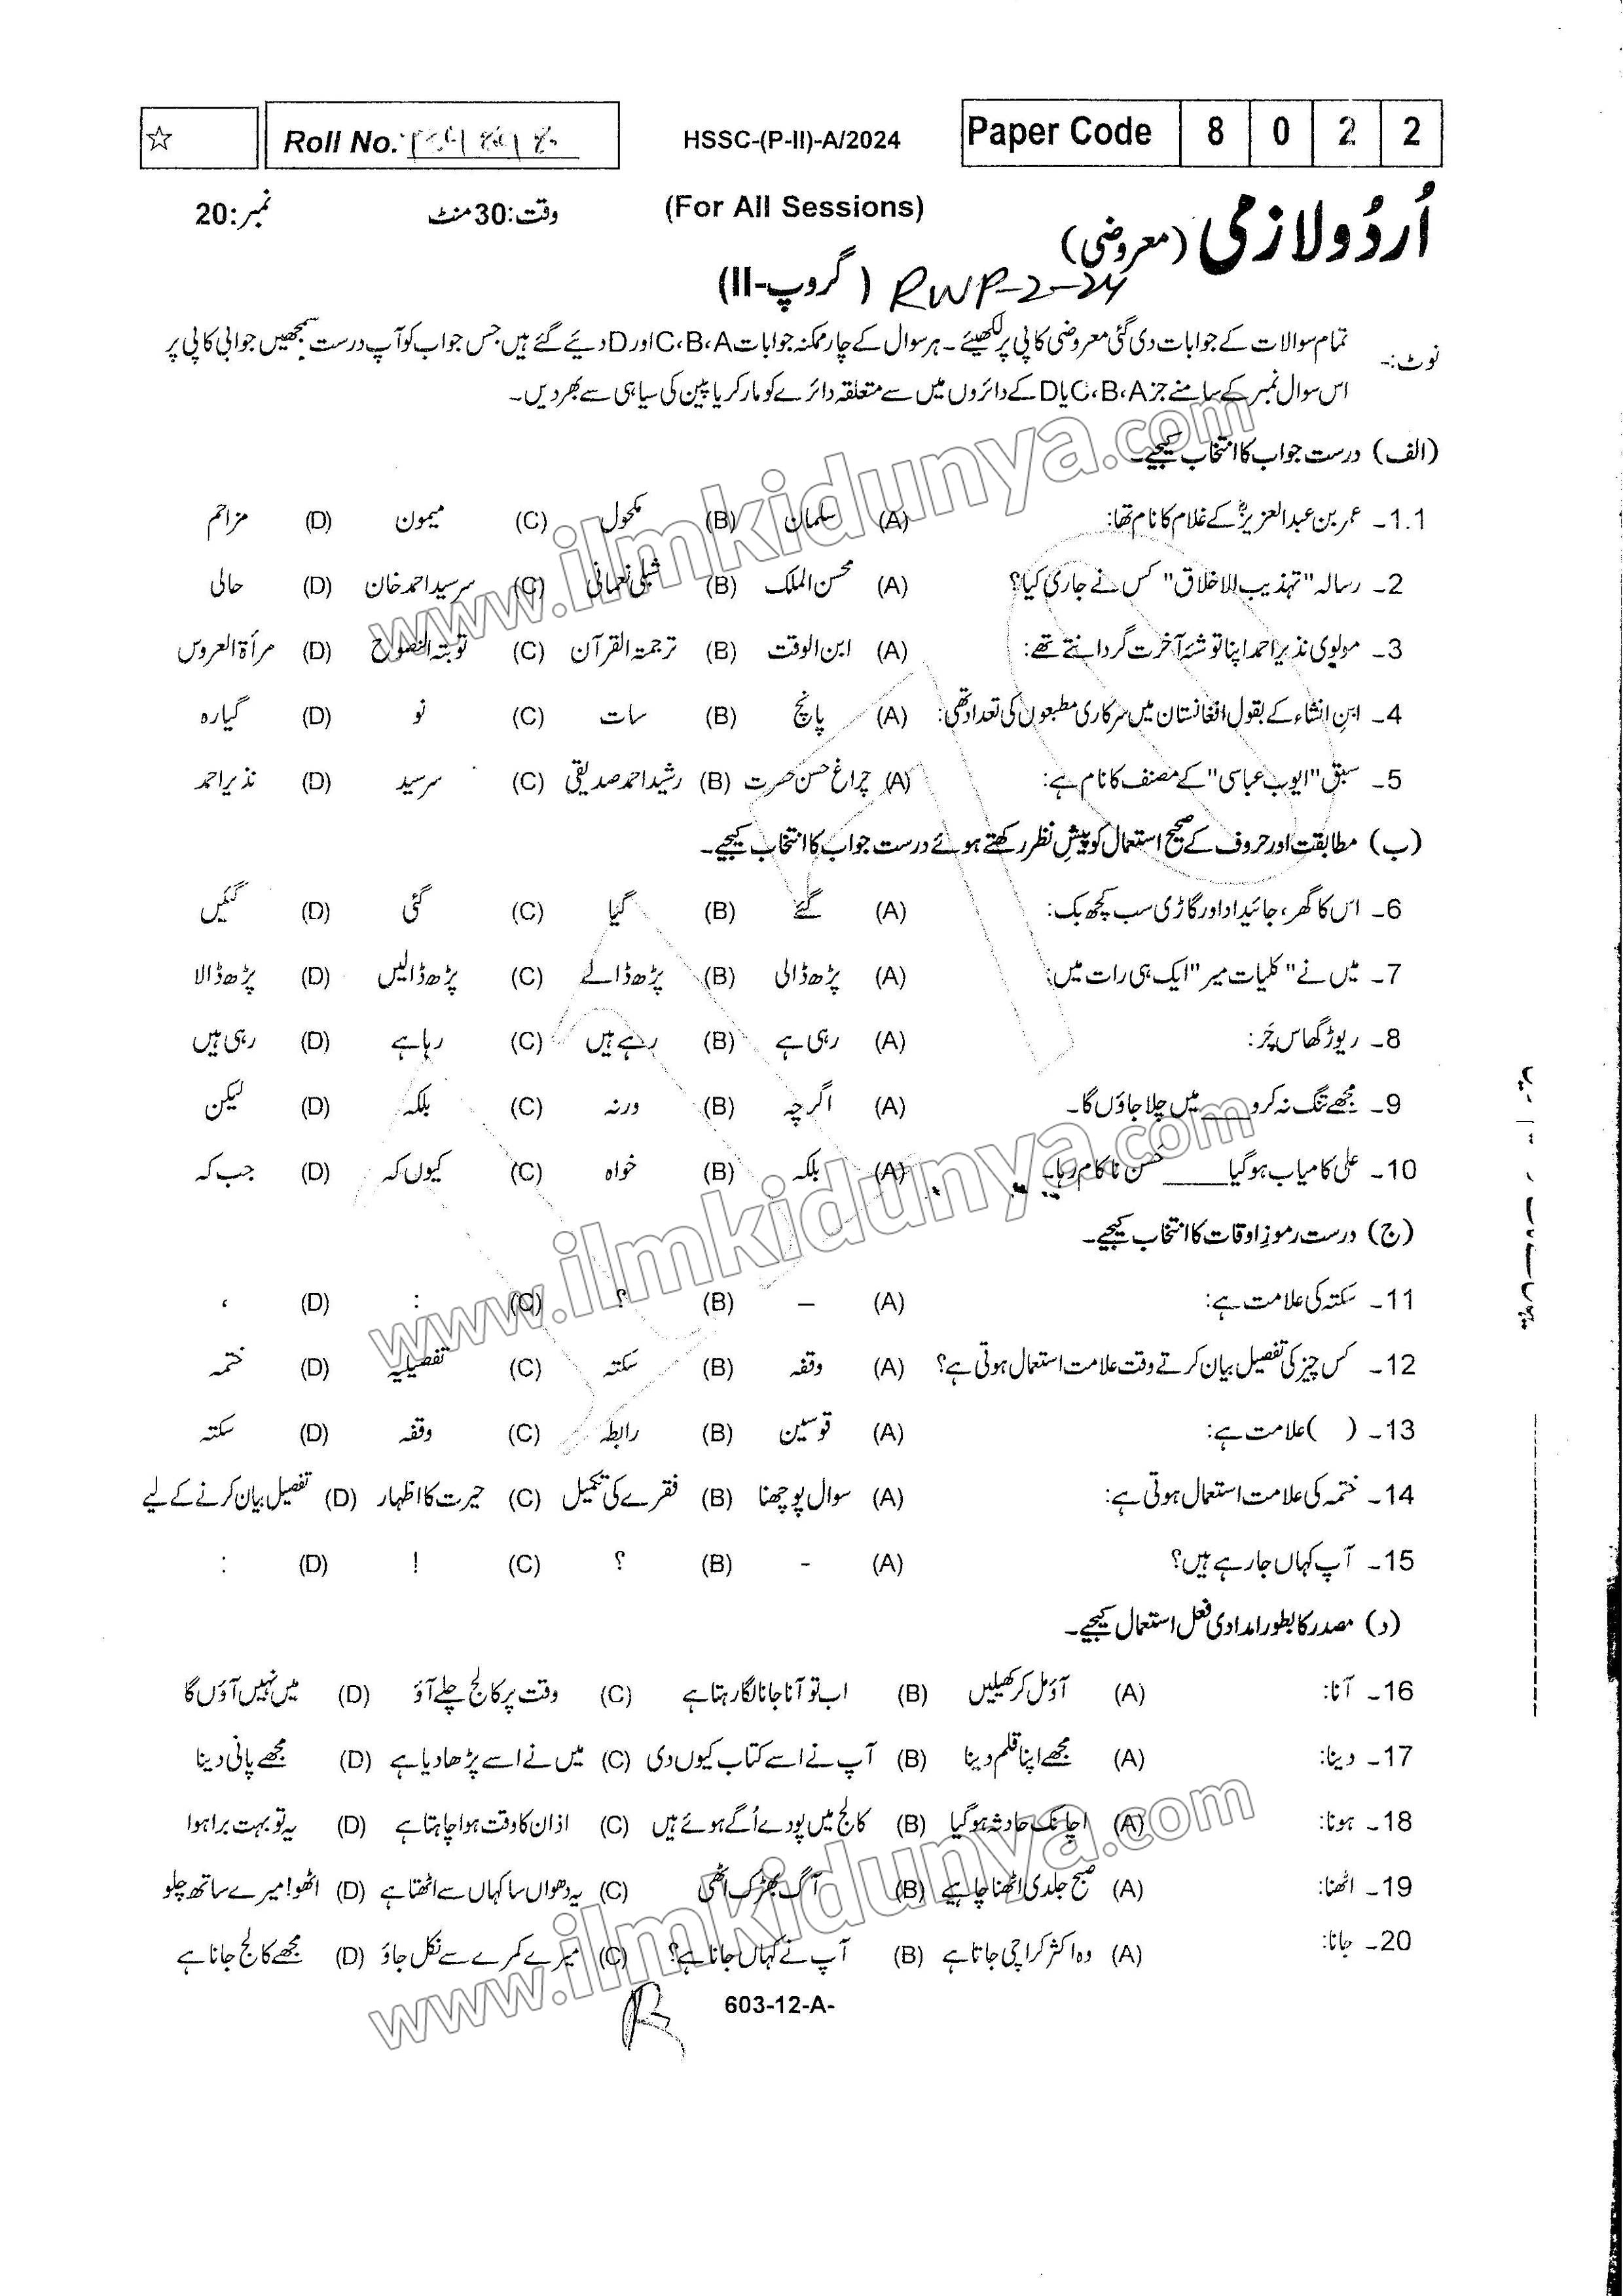 ☆ Roll No. HSSC-(P-II)-A/2024 Paper Code 8 0 2 2
اُردُو لازمی (معروضی) (For All Sessions) وقت:30 منٹ نمبر:20
(گروپ-II) RWP-2-24
نوٹ:- تمام سوالات کے جوابات دی گئی معروضی کاپی پر لکھیئے۔ ہر سوال کے چار ممکنہ جوابات A،B،C اور D دیئے گئے ہیں جس جواب کو آپ درست سمجھیں جوابی کاپی پر
اس سوال نمبر کے سامنے جز A،B،C یا D کے دائروں میں سے متعلقہ دائرے کو مارکر یا پین کی سیاہی سے بھر دیں۔
(الف) درست جواب کا انتخاب کیجیے۔
1.1۔ عمر بن عبدالعزیزؒ کے غلام کا نام تھا: (A) سلمان (B) مکحول (C) میمون (D) مزاحم
2۔ رسالہ "تہذیب الاخلاق" کس نے جاری کیا؟ (A) محسن الملک (B) شبلی نعمانی (C) سرسید احمد خان (D) حالی
3۔ مولوی نذیر احمد اپنا توشۂ آخرت گردانتے تھے: (A) ابن الوقت (B) ترجمۃ القرآن (C) توبتہ النصوح (D) مرأۃ العروس
4۔ ابنِ انشاء کے بقول افغانستان میں سرکاری مطبعوں کی تعداد تھی: (A) پانچ (B) سات (C) نو (D) گیارہ
5۔ سبق "ایوب عباسی" کے مصنف کا نام ہے: (A) چراغ حسن حسرت (B) رشید احمد صدیقی (C) سرسید (D) نذیر احمد
(ب) مطابقت اور حروف کے صحیح استعمال کو پیشِ نظر رکھتے ہوئے درست جواب کا انتخاب کیجیے۔
6۔ اس کا گھر، جائیداد اور گاڑی سب کچھ بک: (A) گئے (B) گیا (C) گئی (D) گئیں
7۔ میں نے "کلیات میر" ایک ہی رات میں: (A) پڑھ ڈالی (B) پڑھ ڈالے (C) پڑھ ڈالیں (D) پڑھ ڈالا
8۔ ریوڑ گھاس چَر: (A) رہی ہے (B) رہے ہیں (C) رہا ہے (D) رہی ہیں
9۔ مجھے تنگ نہ کرو ____ میں چلا جاؤں گا۔ (A) اگرچہ (B) ورنہ (C) بلکہ (D) لیکن
10۔ علی کامیاب ہو گیا ____ حسن ناکام رہا۔ (A) بلکہ (B) خواہ (C) کیوں کہ (D) جب کہ
(ج) درست رموزِ اوقات کا انتخاب کیجیے۔
11۔ سکتہ کی علامت ہے: (A) – (B) ؟ (C) : (D) ،
12۔ کس چیز کی تفصیل بیان کرتے وقت علامت استعمال ہوتی ہے؟ (A) وقفہ (B) سکتہ (C) تفصیلیہ (D) ختمہ
13۔ ( ) علامت ہے: (A) قوسین (B) رابطہ (C) وقفہ (D) سکتہ
14۔ ختمہ کی علامت استعمال ہوتی ہے: (A) سوال پوچھنا (B) فقرے کی تکمیل (C) حیرت کا اظہار (D) تفصیل بیان کرنے کے لیے
15۔ آپ کہاں جا رہے ہیں؟ (A) - (B) ؟ (C) ! (D) :
(د) مصدر کا بطور امدادی فعل استعمال کیجیے۔
16۔ آنا: (A) آؤ مل کر کھیلیں (B) اب تو آنا جانا لگا رہتا ہے (C) وقت پر کالج چلے آؤ (D) میں نہیں آؤں گا
17۔ دینا: (A) مجھے اپنا قلم دینا (B) آپ نے اسے کتاب کیوں دی (C) میں نے اسے پڑھا دیا ہے (D) مجھے پانی دینا
18۔ ہونا: (A) اچانک حادثہ ہو گیا (B) کالج میں پودے اُگے ہوئے ہیں (C) اذان کا وقت ہوا چاہتا ہے (D) یہ تو بہت برا ہوا
19۔ اٹھنا: (A) صبح جلدی اٹھنا چاہیے (B) آگ بھڑک اٹھی (C) یہ دھواں سا کہاں سے اٹھتا ہے (D) اٹھو! میرے ساتھ چلو
20۔ جانا: (A) وہ اکثر کراچی جاتا ہے (B) آپ نے کہاں جانا ہے؟ (C) میرے کمرے سے نکل جاؤ (D) مجھے کالج جانا ہے
603-12-A-
www.ilmkidunya.com
www.ilmkidunya.com
www.ilmkidunya.com